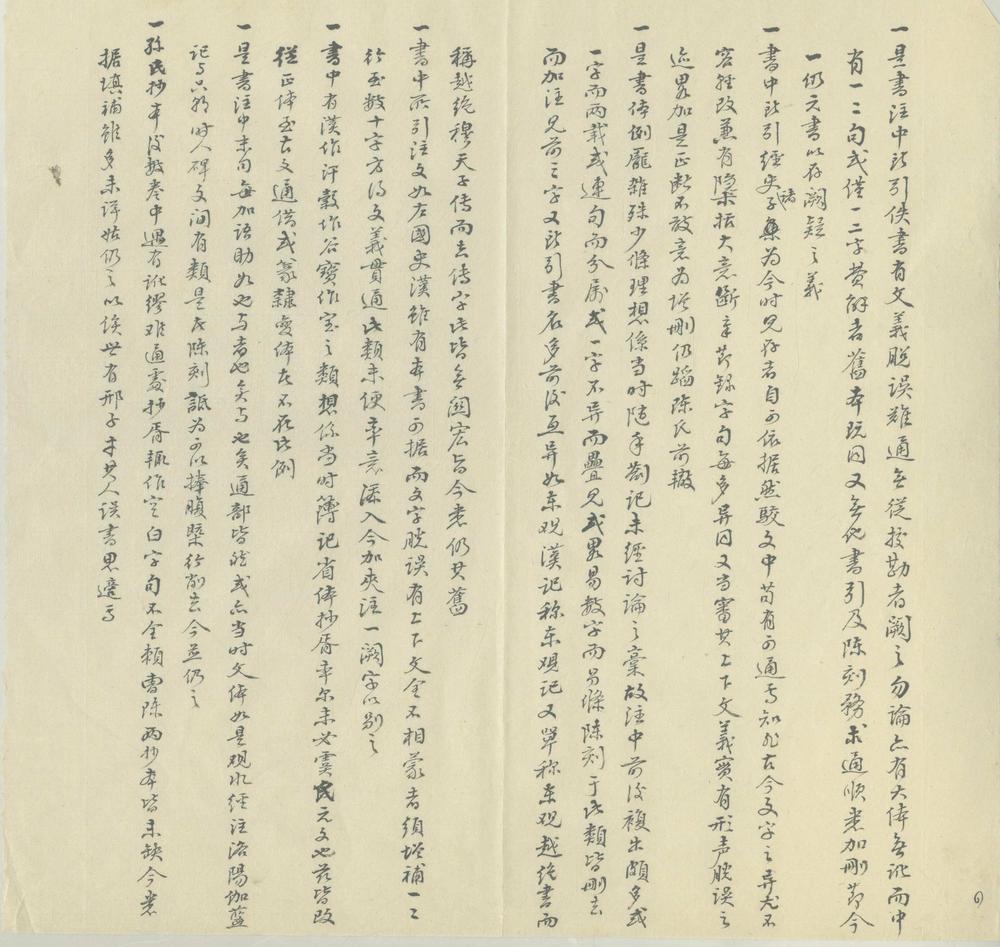 一是書注中所引佚書有文義脫誤難通無從挍勘者闕之勿論亦有大体無訛而中
有一二句或僅一二字費解者舊本既同又無他書引及陳刻務求通順悉加刪節今
一仍元書以存闕疑之義
一書中所引經史諸子集為今時見存者自可依据然駮文中苟有可通安知非古今文字之異尤不
容輕改兼有隱栝大意斷章節録字句每多異同又當審其上下文義實有形声脫誤之
迹畧加是正断不敢意為增刪仍蹈陳氏前轍
一是書体例龐雜殊少條理想係當时随手劄記未經討論之稾故注中前後複出頗多或
一字而两載或連句而分属或一字不异而疊見或畧易数字而另條陳刻于此類皆刪去
而加注見前三字又所引書名多前後互异如东观漢記称东觀記又單称东观越絶書而
稱越絶穆天子傳而去傳字此皆無関宏旨今悉仍其舊
一書中所引注文如左國史漢雖有本書可据而文字脫誤有上下文全不相蒙者須增補一二
行至数十字方得文義貫通此類未便率意添入今加夾注一闕字以别之
一書中有漢作汗穀作谷寶作宝之類想係当时簿記省体抄胥率尔未必虞氏元文也茲皆改
從正体至古文通借或篆隸变体在不在此例
一是書注中末句每加語助如也与者也矣与也矣通部皆然或亦当时文体如是观水經注洛陽伽藍
記与六朝时人碑文间有類是者陈刻詆为可以捧腹槩行削去今並仍之
一孫氏抄本後数卷中遇有訛謬难通處抄胥輒作空白字句不全賴曹陈两抄本皆未缺今悉
据填補雖多未詳姑仍之以俟世有邢子才其人误書思適焉